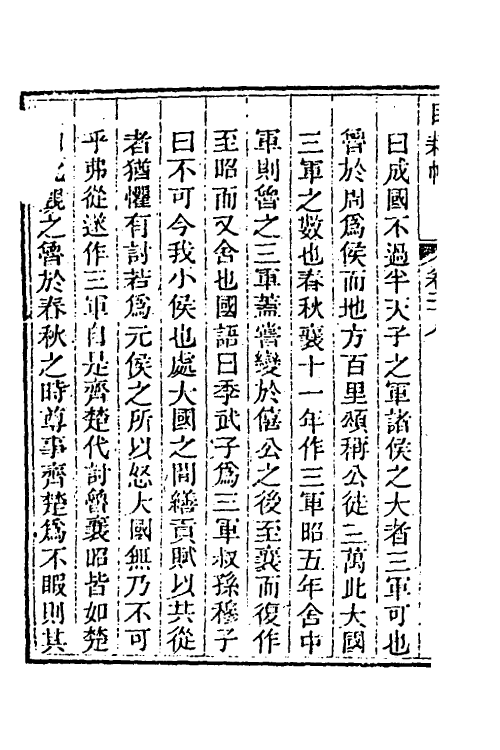 曰成國不過半天子之軍諸侯之大者三軍可也
魯於周爲侯而地方百里頌稱公徒三萬此大國
三軍之數也春秋襄十一年作三軍昭五年舍中
軍則魯之三軍蓋嘗變於僖公之後至襄而復作
至昭而又舍也國語曰季武子爲三軍叔孫穆子
曰不可今我小侯也處大國之間繕貢賦以共從
者猶懼有討若爲元侯之所以怒大國無乃不可
乎弗從遂作三軍自是齊楚代討魯襄昭皆如楚
觀之魯於春秋之時尊事齊楚爲不暇則其